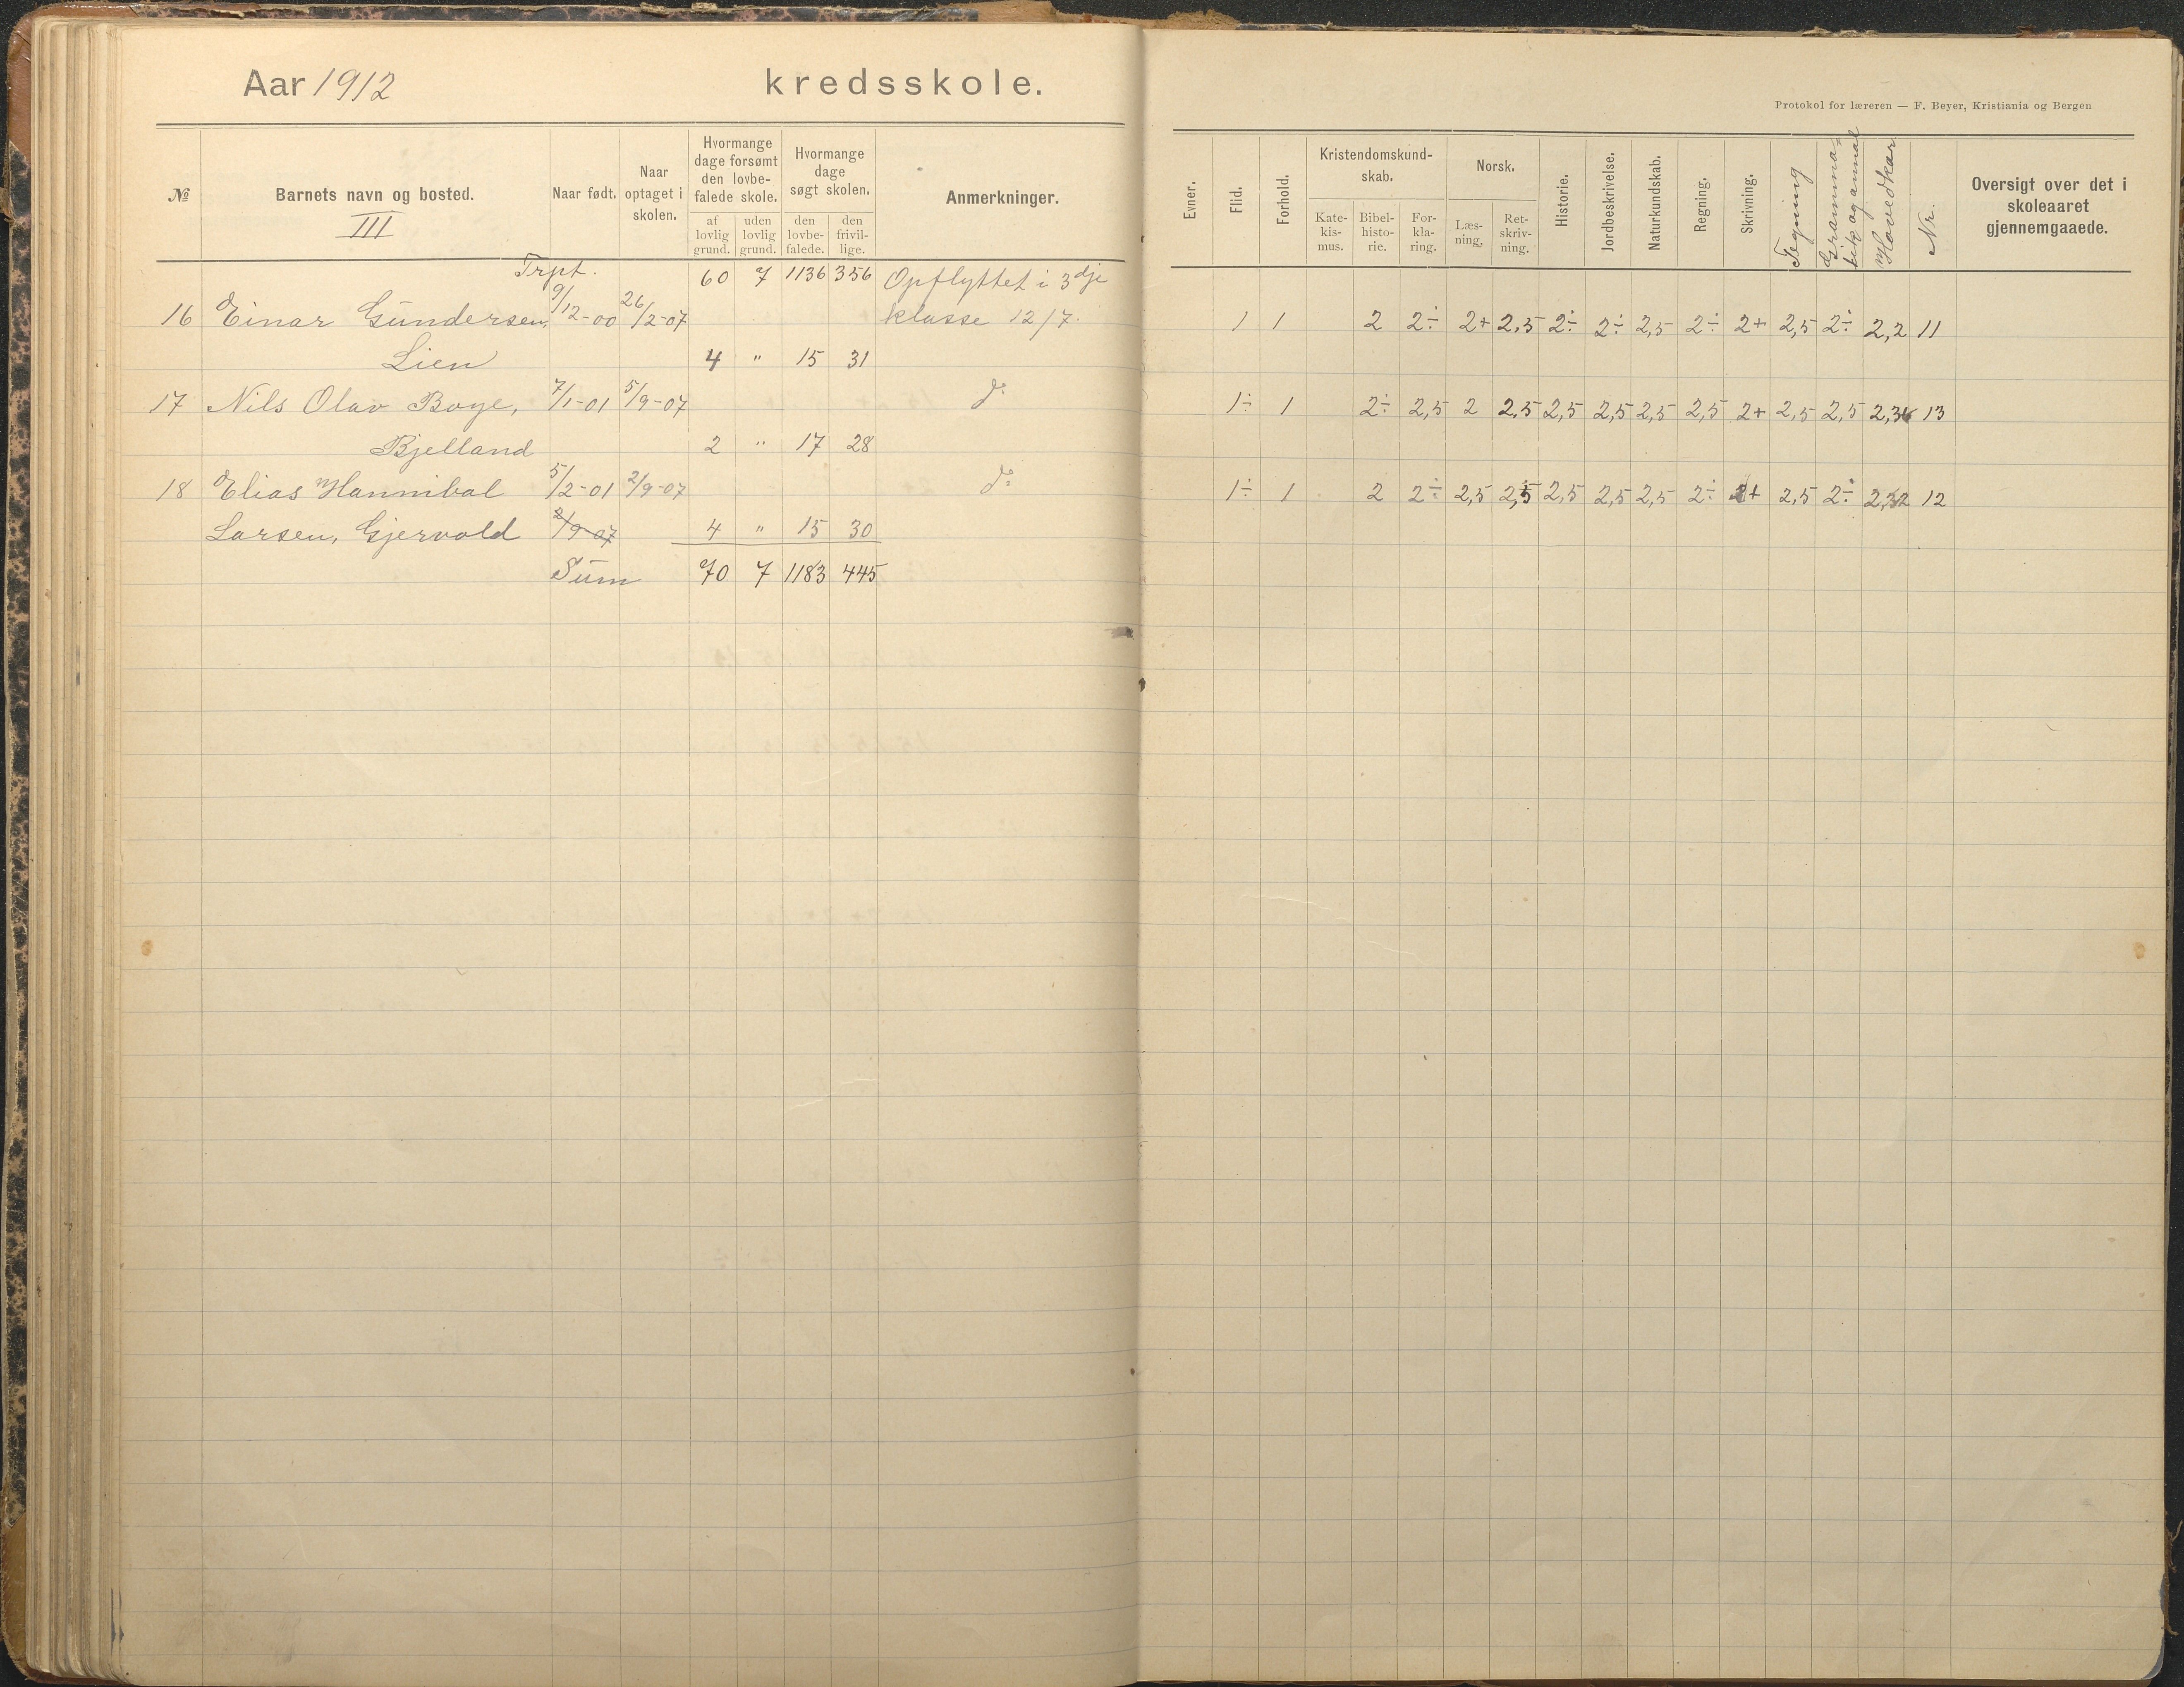 Aar 1912 kredsskole.
№ Barnets navn og bosted. Naar født. Naar optaget i skolen. Hvormange dage forsømt den lovbefalede skole. af lovlig grund. uden lovlig grund. Hvormange dage søgt skolen. den lovbefalede. den frivillige. Anmerkninger.
III
Trpt. 60 7 1136 356 Opflyttet i 3dje
16 Einar Gundersen, 9/12-00 26/2-07 klasse 12/7.
Lien 4 " 15 31
17 Nils Olav Boye, 7/1-01 5/9-07 do
Bjelland 2 " 17 28
18 Elias Hannibal 5/2-01 2/9-07 do
Larsen, Gjervold 2/9-07 4 " 15 30
Sum 70 7 1183 445
Protokol for læreren — F. Beyer, Kristiania og Bergen
Evner. Flid. Forhold. Kristendomskundskab. Katekismus. Bibelhistorie. Forklaring. Norsk. Læsning. Retskrivning. Historie. Jordbeskrivelse. Naturkundskab. Regning. Skrivning. Tegning Grammatik og Hovedkar. Nr. Oversigt over det i skoleaaret gjennemgaaede.
1 1 2 2÷ 2+ 2,5 2÷ 2÷ 2,5 2÷ 2+ 2,5 2÷ 2,2 11
1÷ 1 2÷ 2,5 2 2,5 2,5 2,5 2,5 2,5 2+ 2,5 2,5 13
1÷ 1 2 2÷ 2,5 2,5 2,5 2,5 2,5 2÷ 2+ 2,5 2÷ 12